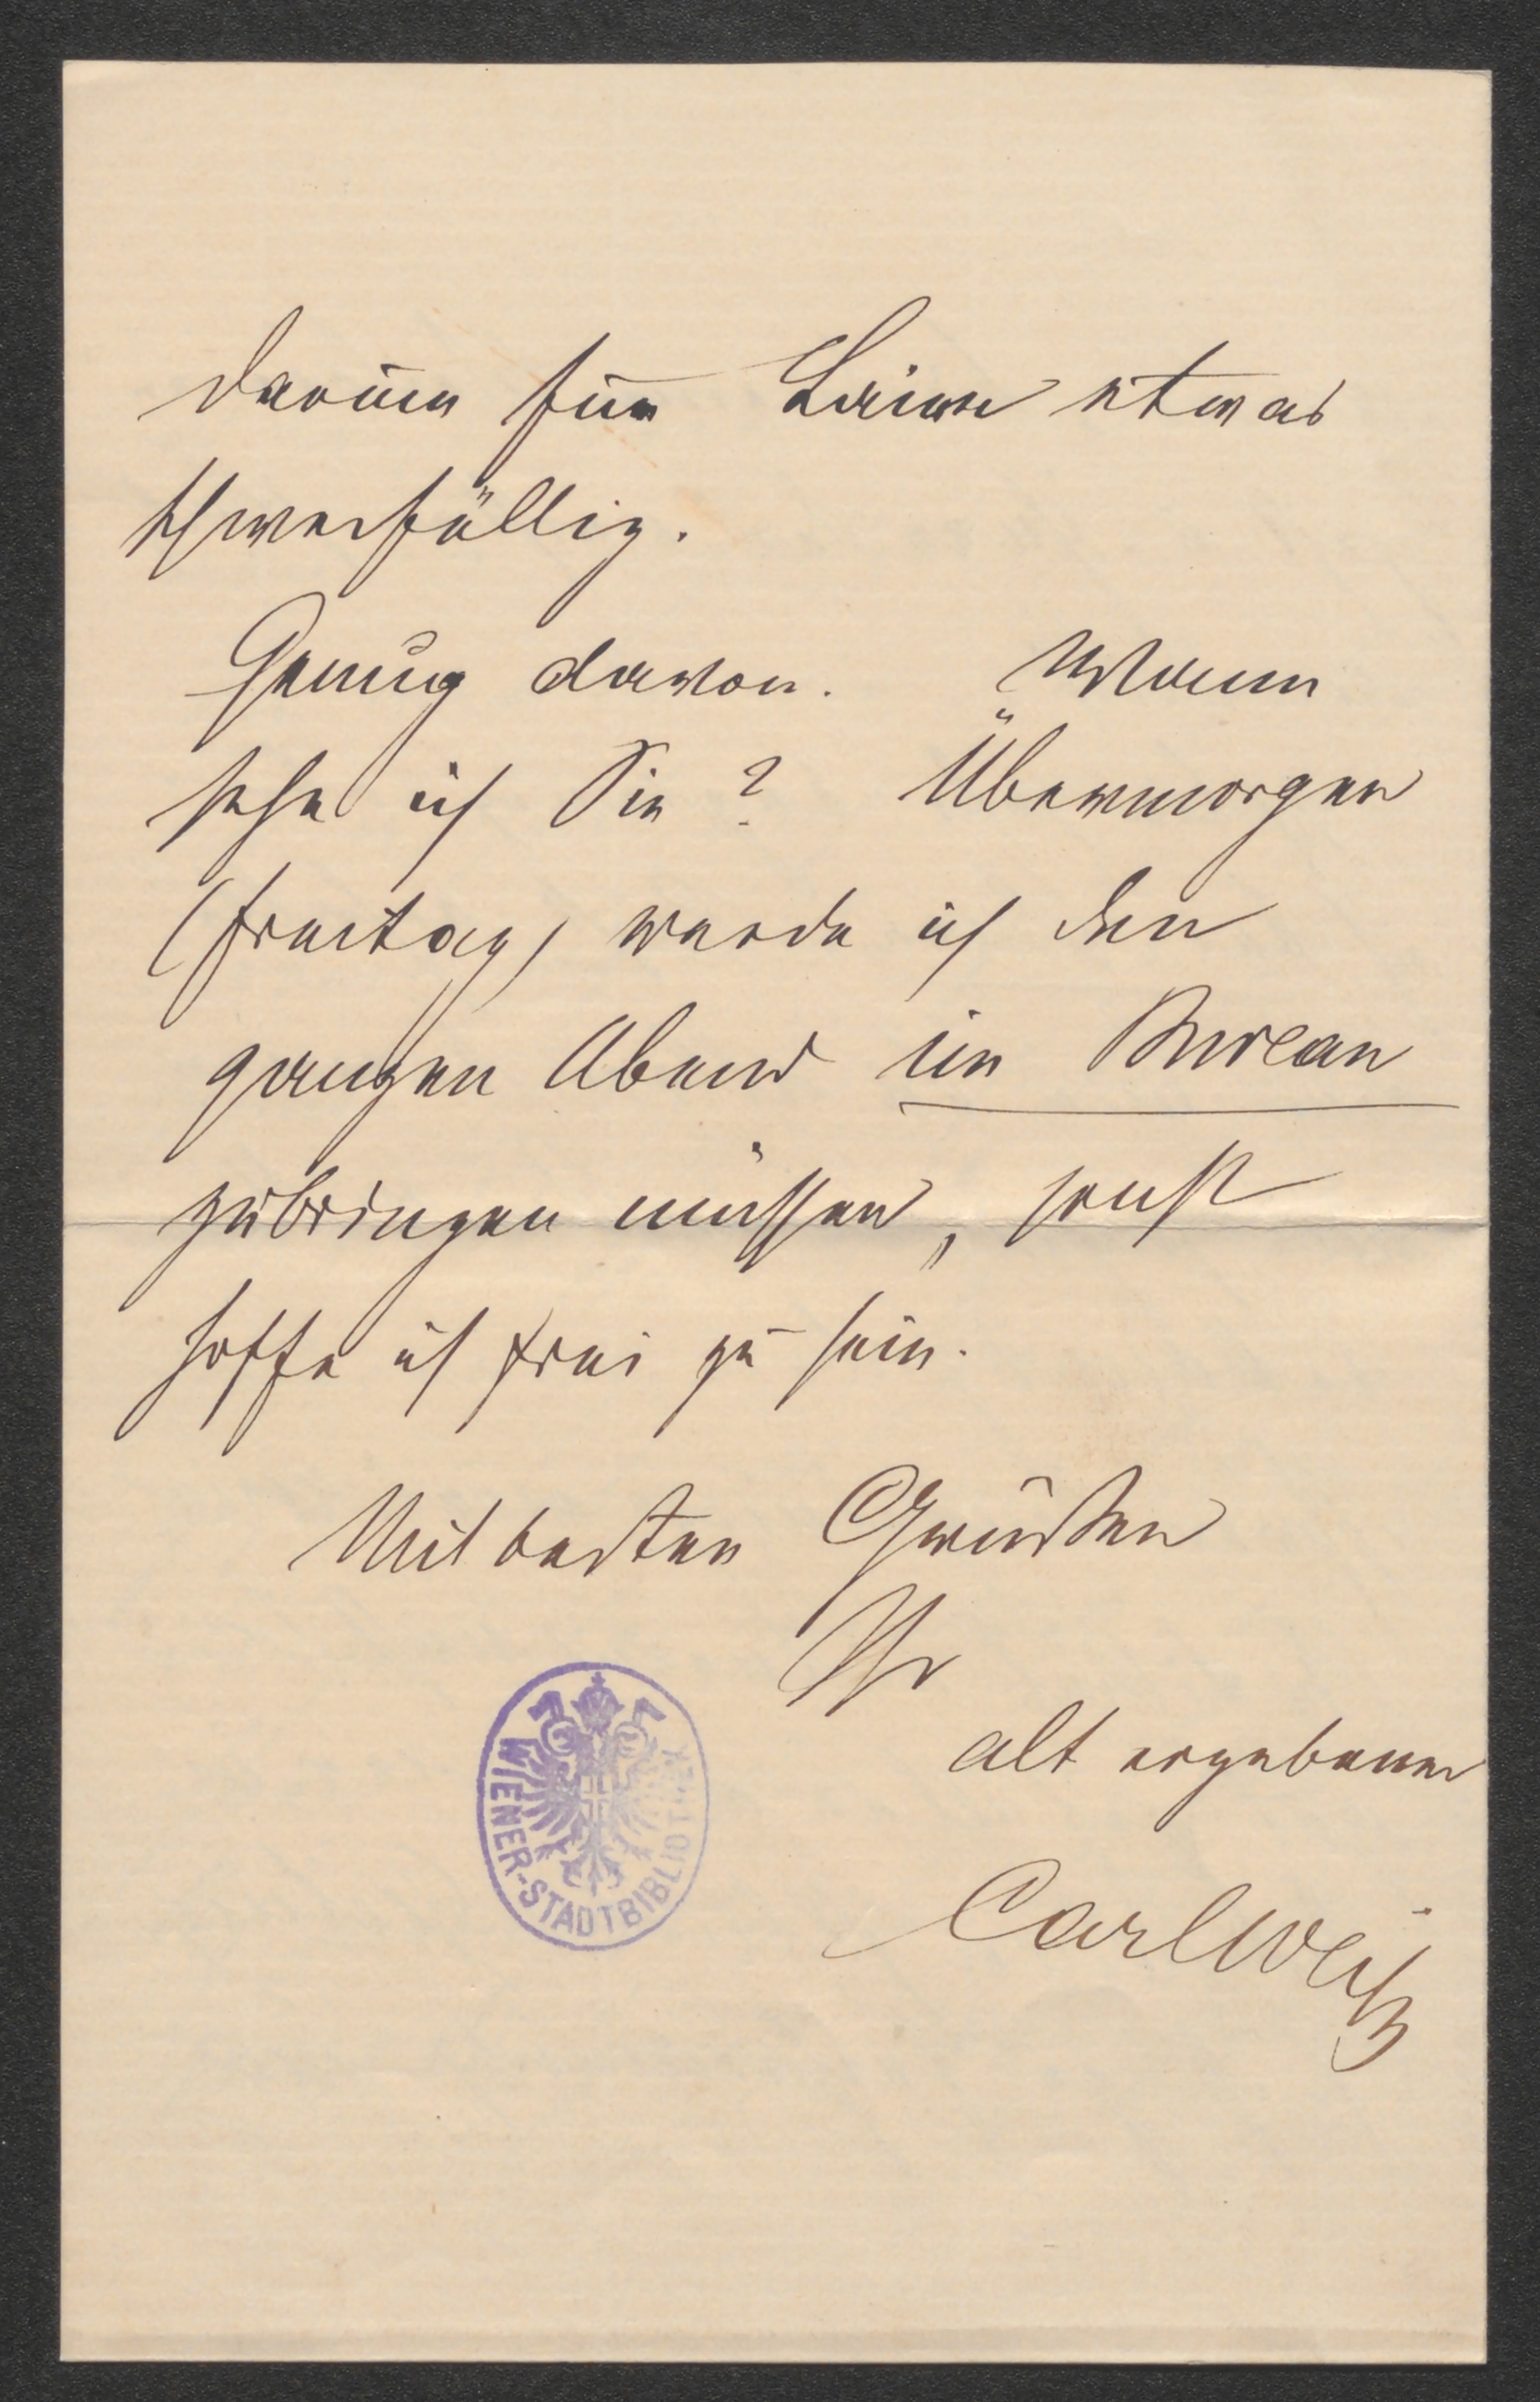 darum für Laien etwas
schwerfällig.
Genug davon. Wann
sehe ich Sie? Übermorgen
(Freitag) werde ich den
ganzen Abend im Bureau
zubringen müssen, sonst
hoffe ich frei zu sein.
Mit besten Grüßen
Ihr
alt ergebener
Carlweis
WIENER-STADTBIBLIOTHEK